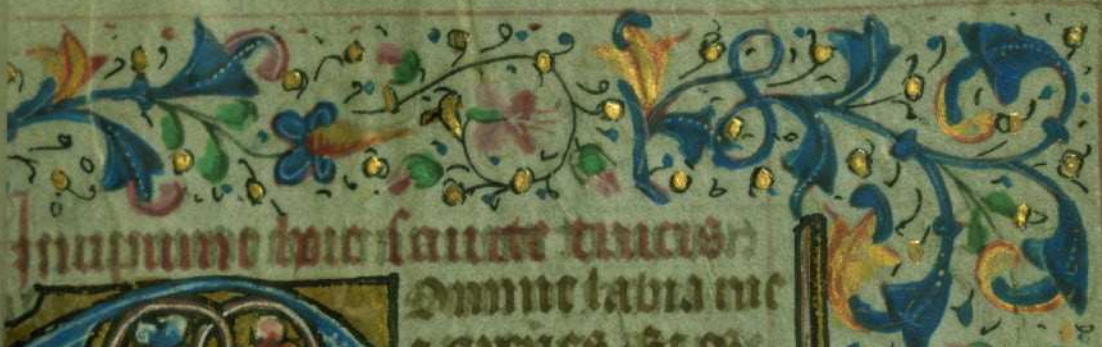 Incipiunt hore sancte crucis
Omine labia me
a aperies